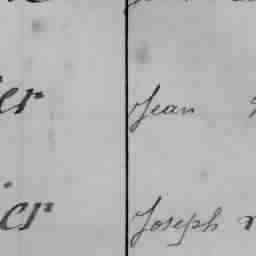 er Jean
ier Joseph